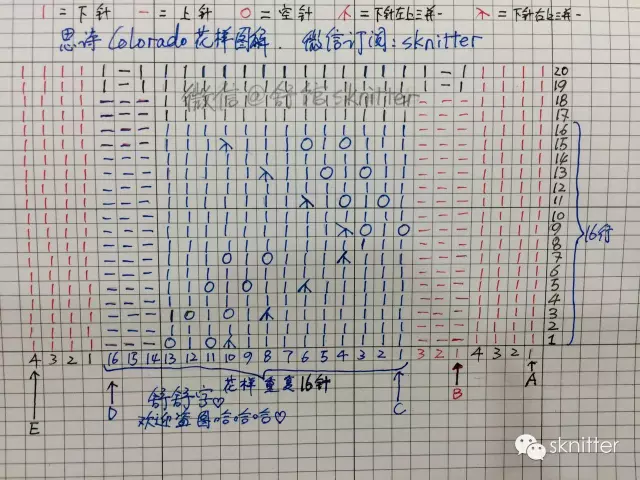 | = 下针 — = 上针 O = 空针 入 = 下针左上三并一 入 = 下针右上三并一
思诗 Colorado 花样图解. 微信订阅: sknitter
微信@舒舒sknitter
20
19
18
17
16
15
14
13
12
11
10
9
8
7
6
5
4
3
2
1
16行
4 3 2 1 16 15 14 13 12 11 10 9 8 7 6 5 4 3 2 1 3 2 1 4 3 2 1
花样重复16针
E D C B A
舒舒字♡
欢迎盗图哈哈哈♡
sknitter